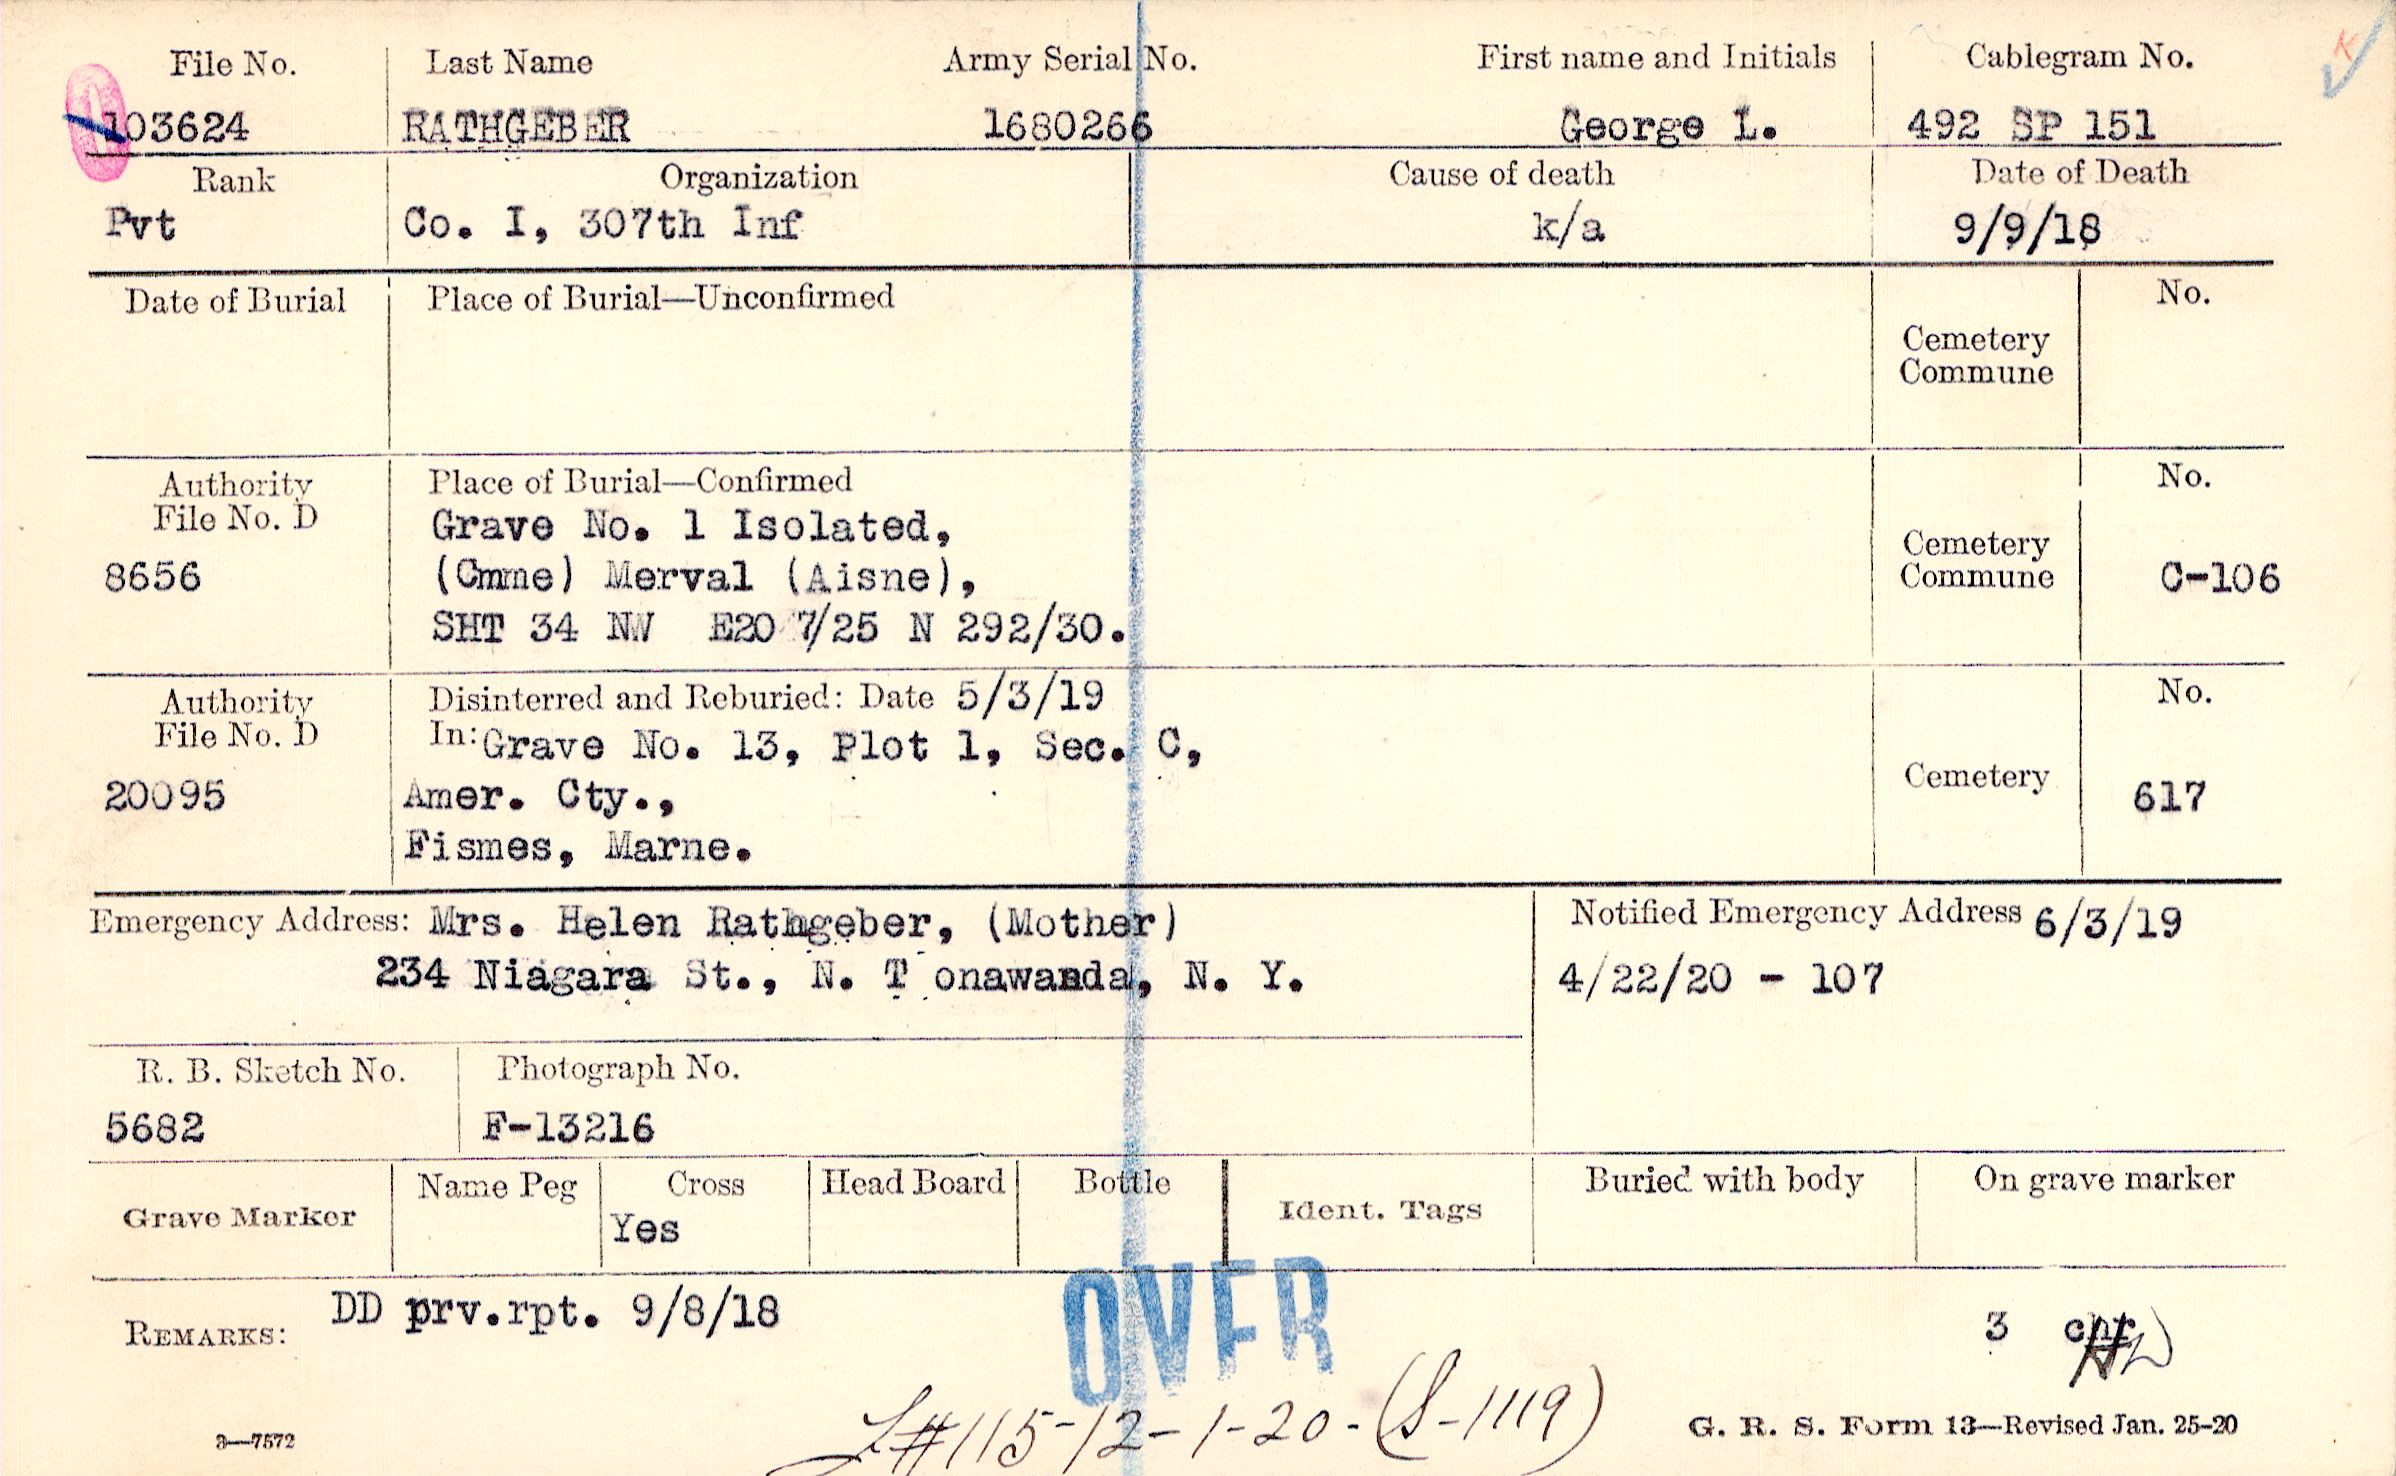 File No. Last Name Army Serial No. First name and Initials Cablegram No. K
103624 RATHGEBER 1680266 George L. 492 SP 151
Rank Organization Cause of death Date of Death
Pvt Co. I, 307th Inf k/a 9/9/18
Date of Burial Place of Burial—Unconfirmed No.
Cemetery
Commune
Authority Place of Burial—Confirmed No.
File No. D Grave No. 1 Isolated, Cemetery
8656 (Cmme) Merval (Aisne), Commune C-106
SHT 34 NW E20 7/25 N 292/30.
Authority Disinterred and Reburied: Date 5/3/19 No.
File No. D In: Grave No. 13, Plot 1, Sec. C,
20095 Amer. Cty., Cemetery 617
Fismes, Marne.
Emergency Address: Mrs. Helen Rathgeber, (Mother) Notified Emergency Address 6/3/19
234 Niagara St., N. T onawanda, N. Y. 4/22/20 - 107
R. B. Sketch No. Photograph No.
5682 F-13216
Grave Marker Name Peg Cross Head Board Bottle Ident. Tags Buried with body On grave marker
Yes
REMARKS: DD prv.rpt. 9/8/18 OVER 3 chr
L#115-12-1-20-(S-1119)
3—7572 G. R. S. Form 13—Revised Jan. 25-20